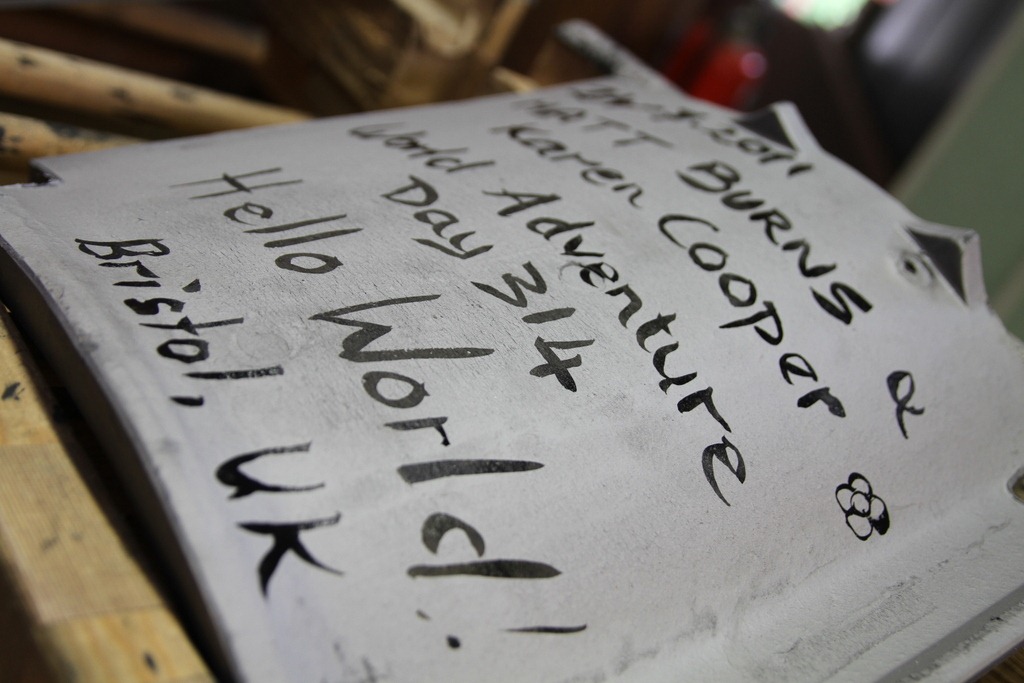 2011
MATT BURNS &
Karen Cooper
World Adventure
Day 314
Hello World!
Bristol, UK